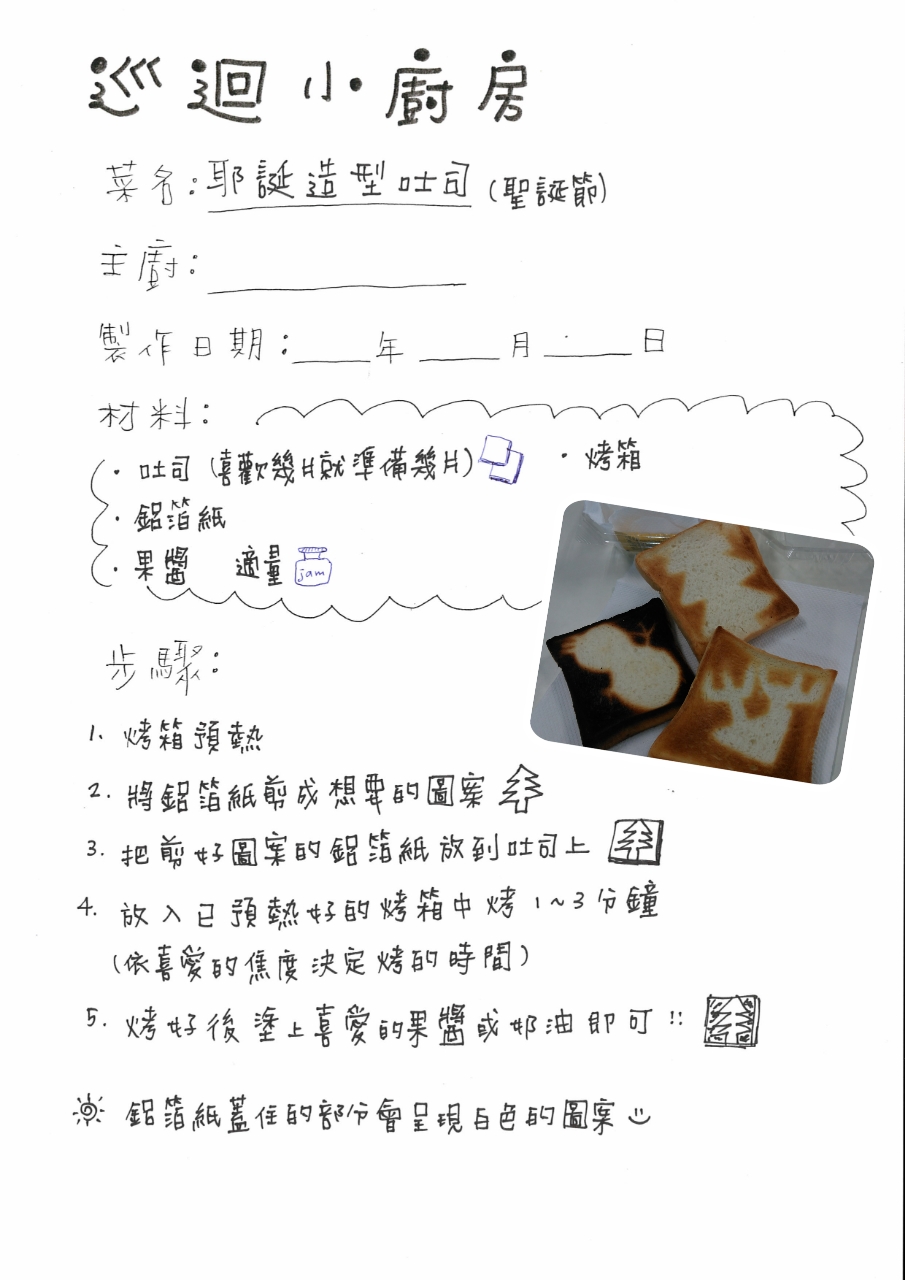 巡迴小廚房
菜名:耶誕造型吐司(聖誕節)
主廚:
製作日期:____年____月____日
材料:
・吐司(喜歡幾片就準備幾片) ・烤箱
・鋁箔紙
・果醬 適量 jam
步驟:
1. 烤箱預熱
2. 將鋁箔紙剪成想要的圖案
3. 把剪好圖案的鋁箔紙放到吐司上
4. 放入已預熱好的烤箱中烤1~3分鐘
(依喜愛的焦度決定烤的時間)
5. 烤好後塗上喜愛的果醬或奶油即可!!
鋁箔紙蓋住的部分會呈現白色的圖案